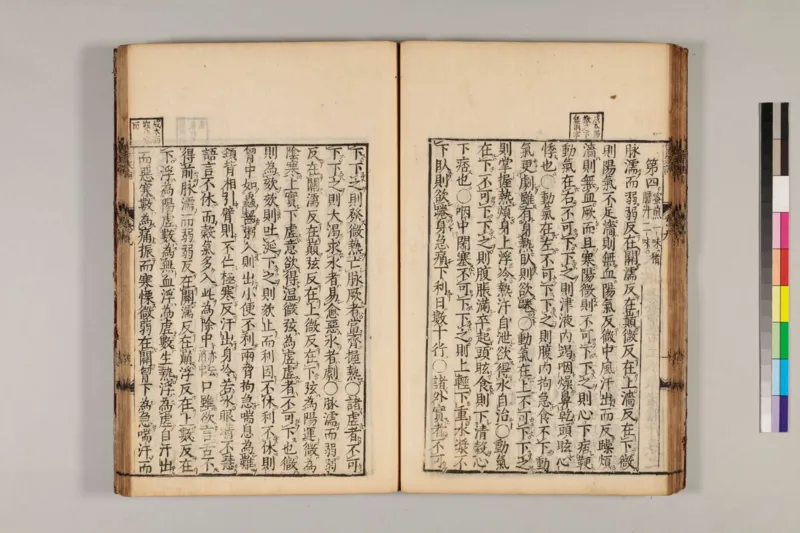 第四
脉濡而弱弱反在關濡反在巔微反在上濇反在下微
則陽氣不足濇則無血陽氣反微中風汗出而反躁煩
濇則無血厥而且寒陽微則不可下下之則心下痞鞕
動氣在右不可下下之則津液內竭咽燥鼻乾頭眩心
悸也〇動氣在左不可下下之則腹內拘急食不下動
氣更劇雖有身熱臥則欲踡〇動氣在上不可下下之
則掌握熱煩身上浮冷熱汗自泄欲得水自治〇動氣
在下不可下下之則腹脹滿卒起頭眩食則下清穀心
下痞也〇咽中閉塞不可下下之則上輕下重水漿不
下臥則欲踡身急痛下利日數十行〇諸外實者不可
下下之則發微熱亡脉厥者當齊握熱〇諸虛者不可
下下之則大渴求水者易愈惡水者劇〇脉濡而弱弱
反在關濡反在巔弦反在上微反在下弦為陽運微為
陰寒上實下虛意欲得溫微弦為虛虛者不可下也微
則為欬欬則吐涎下之則欬止而利因不休利不休則
胷中如蟲齧粥入則出小便不利兩脅拘急喘息為難
頸背相引臂則不仁極寒反汗出身冷若冰眼睛不慧
語言不休而穀氣多入此為除中口雖欲言舌不
得前脉濡而弱弱反在關濡反在巔浮反在上數反在
下浮為陽虛數為無血浮為虛數生熱浮為虛自汗出
而惡寒數為痛振而寒慄微弱在關胷下為急喘汗而